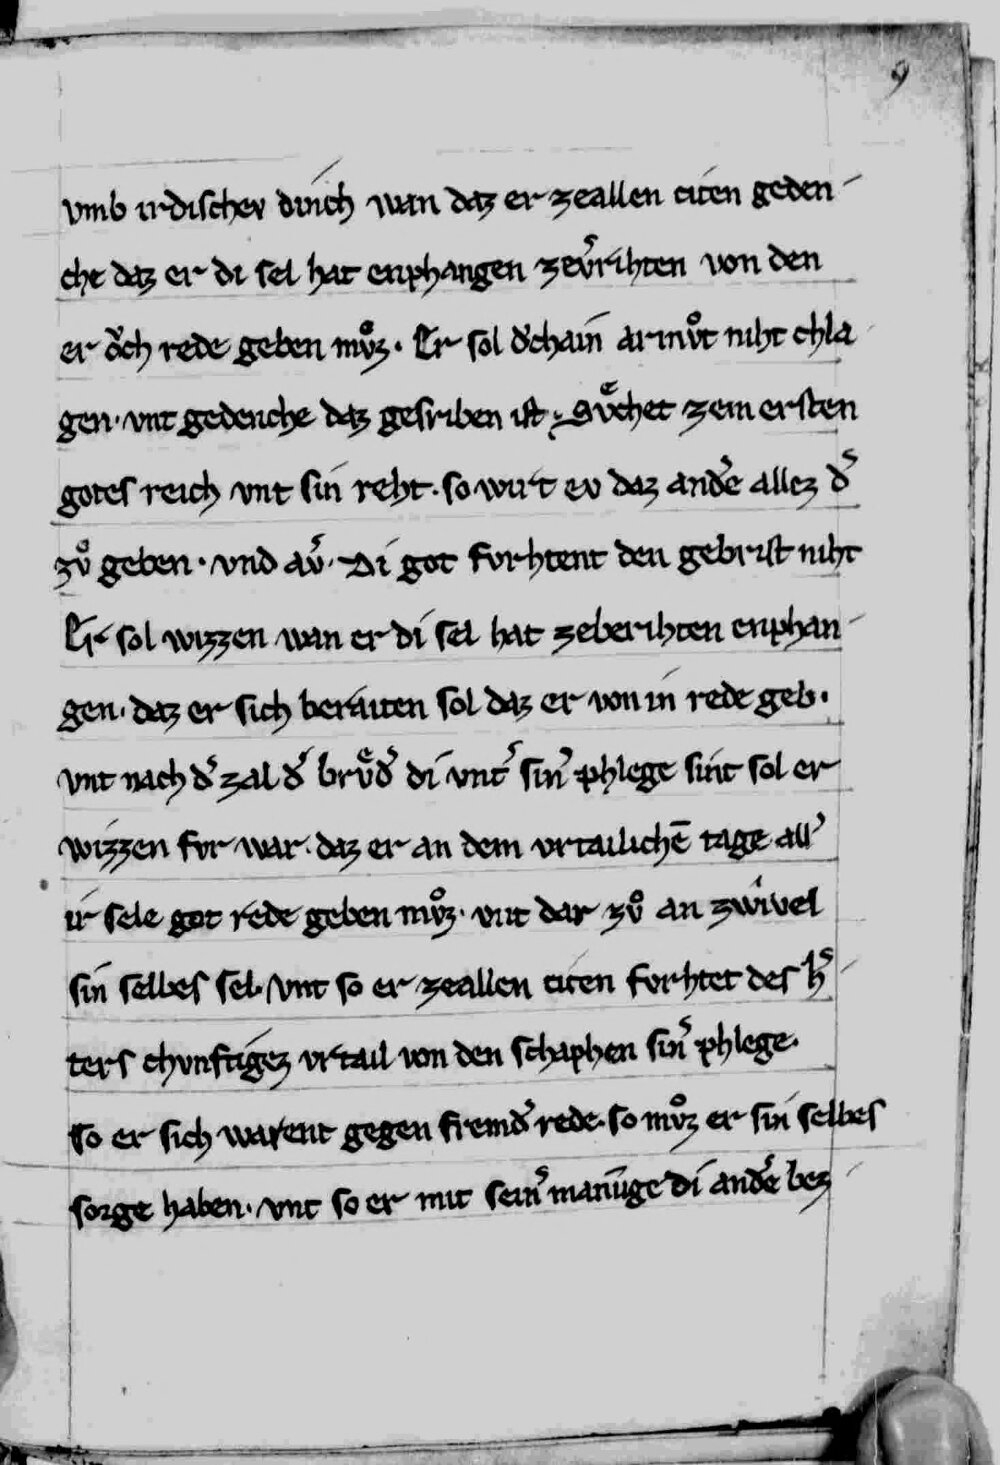 9
vmb irdischev dinch wan daz er zeallen citen geden
che daz er di sel hat enphangen zev͛rihten von den
er och rede geben mvͦz. Er sol dchain armvͦt niht chla
gen. vnt gedenche daz gesriben ist. Svͤchet zem ersten
gotes reich vnt sin reht. so wirt ev daz and͛e allez d͛
zvͦ geben. vnd av͛. Di got fvrhtent den gebrist niht
Er sol wizzen wan er di sel hat zeberihten enphan
gen. daz er sich beraiten sol daz er von in rede geb.
vnt nach d͛ zal d͛ brvͤd͛ di vnt͛ sin͛ phlege sint sol er
wizzen fvr war. daz er an dem vrtailichē tage all͛
ir sele got rede geben mvͦz. vnt dar zvͦ an zwivel
sin selbes sel. vnt so er zeallen citen fvrhtet des h͛
ters chvnftigez vrtail von den schaphen sin͛ phlege.
so er sich warent gegen fremd͛ rede. so mvͦz er sin selbes
sorge haben. vnt so er mit sein͛ manūge di and͛e bez